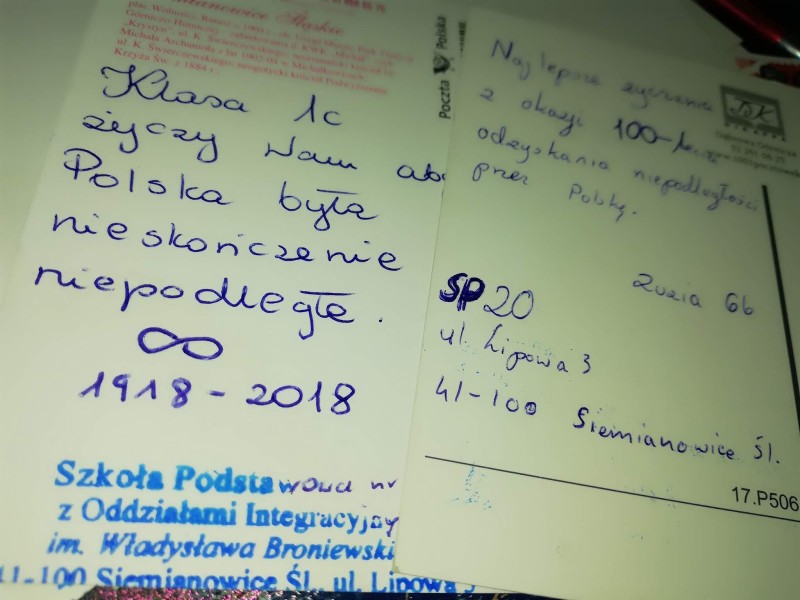 Siemianowice Śląskie
Klasa 1c
życzy Wam aby
Polska była
nieskończenie
niepodległa.
∞
1918-2018
Szkoła Podstawowa nr
z Oddziałami Integracyjny
im. Władysława Broniewski
41-100 Siemianowice Śl., ul. Lipowa 3
Poczta Polska
Najlepsze życzenia
z okazji 100-lecia
odzyskania niepodległości
przez Polskę.
Zuzia 6b
SP 20
ul. Lipowa 3
41-100 Siemianowice Śl.
17.P506